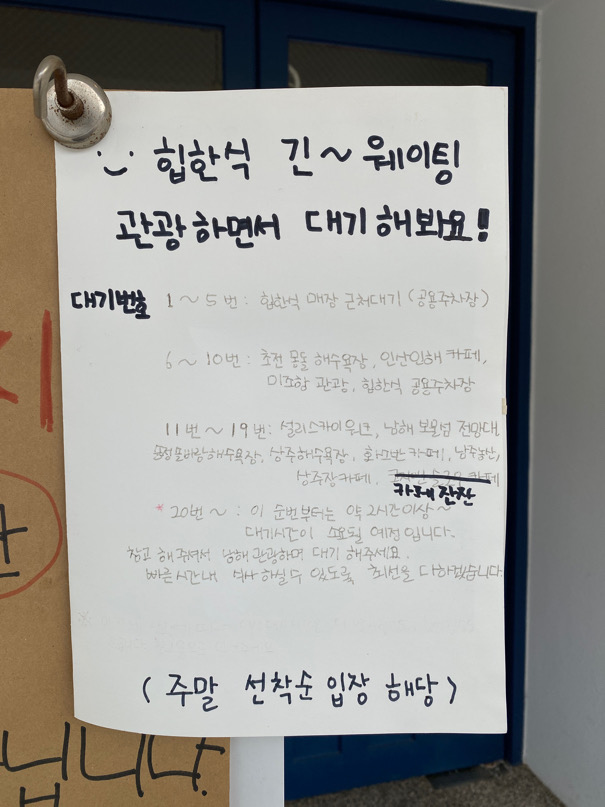 힙한식 긴~ 웨이팅
관광하면서 대기해봐요!
대기번호 1~5번: 힙한식 매장 근처대기 (공용주차장)
6~10번: 초전 몽돌 해수욕장, 인산인해 카페,
미조항 관광, 힙한식 공용주차장
11번~19번: 설리스카이워크, 남해 보물섬 전망대
해수욕장, 상주해수욕장, 화소반 카페, 남주농산,
상주장카페, 카페
카페 잔잔
*20번~: 이 순번부터는 약 2시간이상~
대기시간이 소요될 예정입니다.
참고 해주셔서 남해관광하며 대기 해주세요.
빠른시간내 식사하실수 있도록 최선을 다하겠습니다
(주말 선착순 입장 해당)
니다